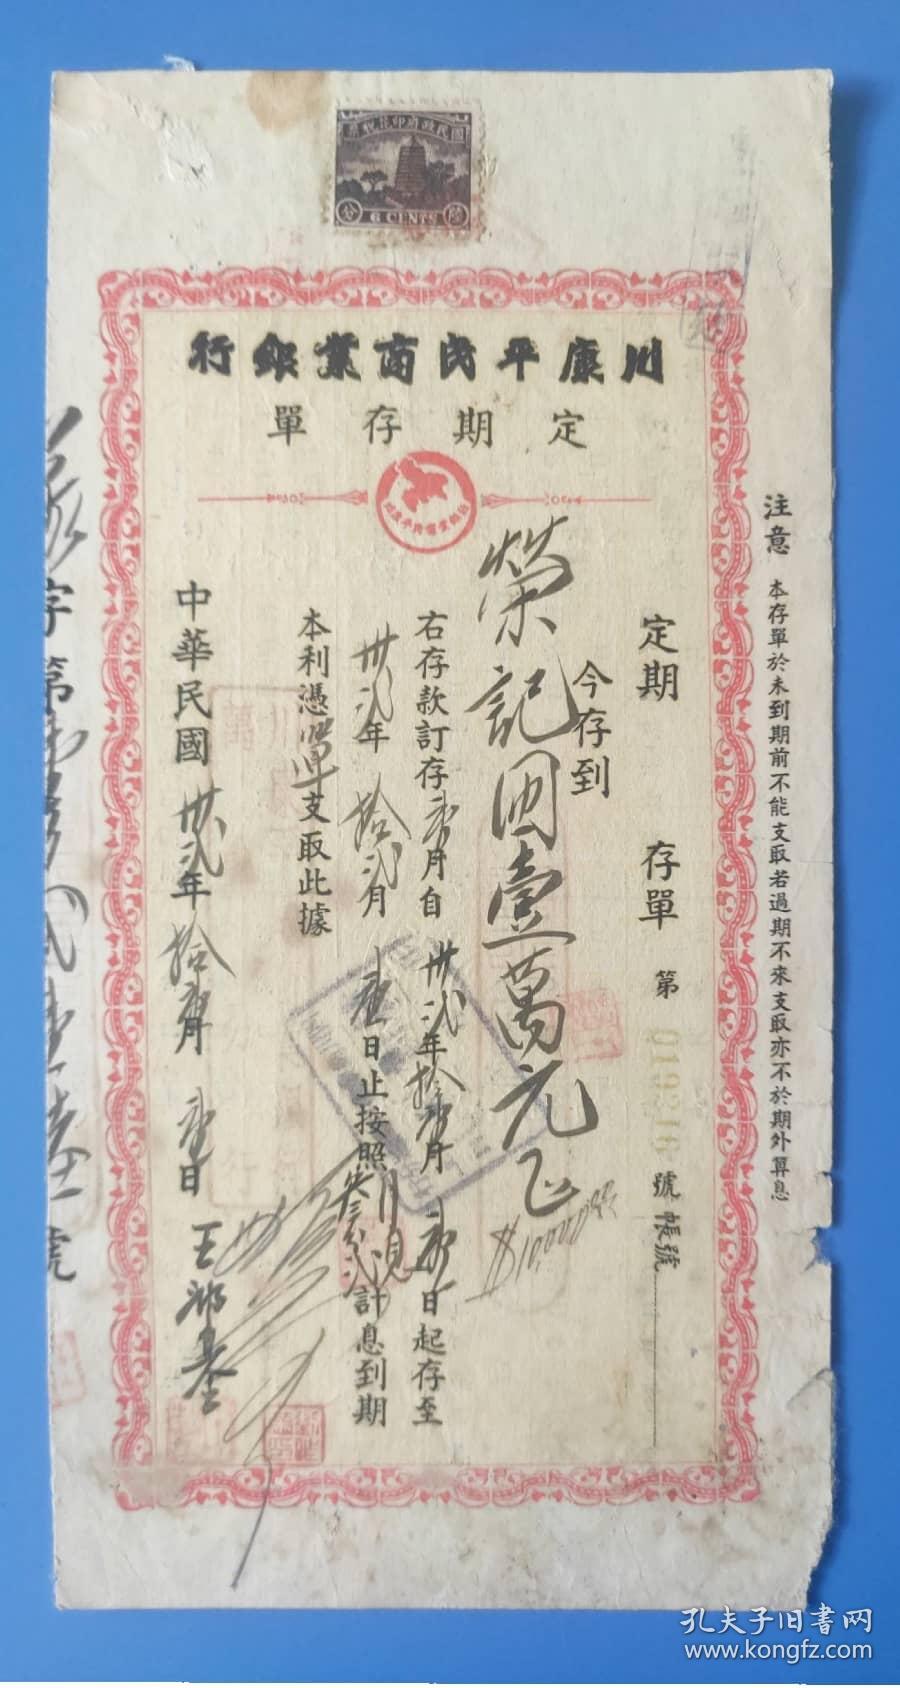 國民政府印花稅票
6 CENTS
川康平民商業銀行
定期存單
注意 本存單於未到期前不能支取若過期不來支取亦不於期外算息
定期 存單 第 019216 號帳號
今存到
榮記國幣壹萬元正
$10,000.00
右存款訂存壹月自卅弍年拾壹月壹日起存至
卅弍年拾弍月壹日止按照月息叁分弍計息到期
本利憑單支取此據
中華民國卅弍年拾壹月壹日
字第
號
孔夫子旧书网
www.kongfz.com